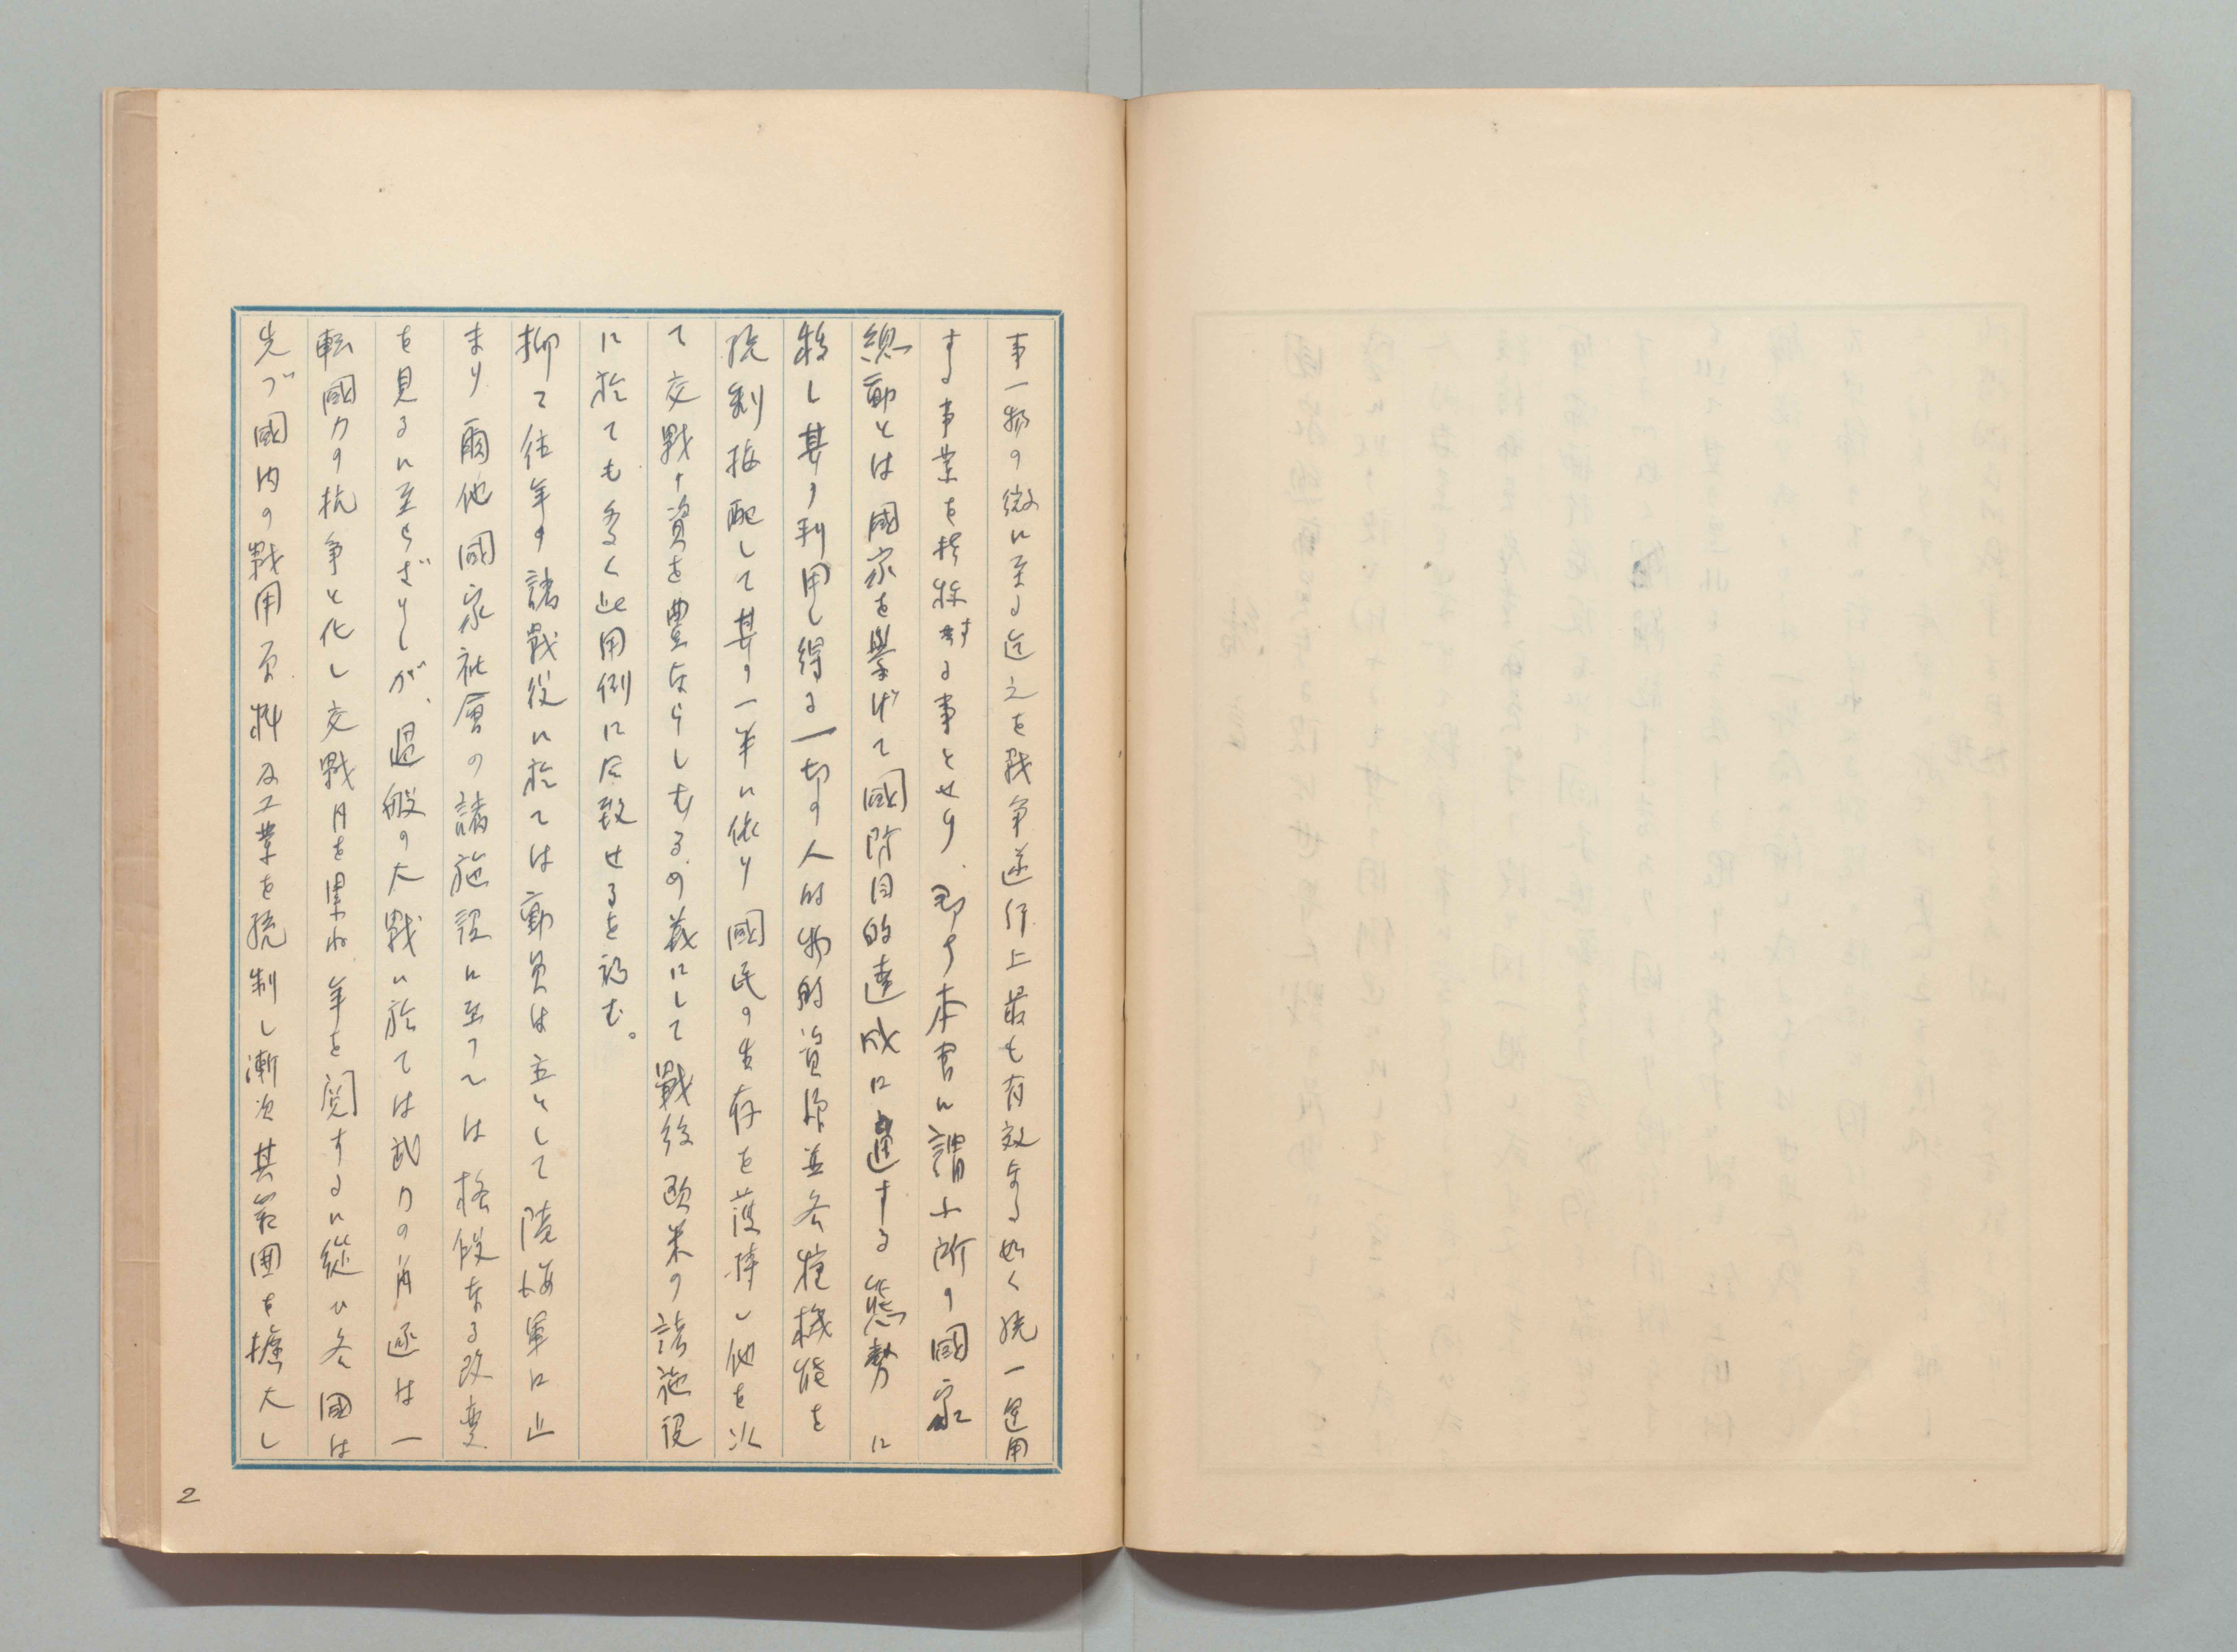 事一物の微に至る迄之を戦争遂行上最も有效なる如く統一運用
する事業を指称する事とせり、即ち本書に謂ふ所の國家
總動とは國家を擧げて國防目的達成に適する態勢に
移し其の利用し得る一切の人的物的資源並各種機能を
統制按配して其の一半に依り國民の生存を護持し他を以
て交戰の資を豊ならしむるの義にして戰後欧米の諸施設
に於ても多く此用例に合致せるを認む。
抑て往年の諸戰役に於ては動員は主として陸海軍に止
まり爾他國家社會の諸施設に至つては格段なる改変
を見るに至らざりしが、過般の大戰に於ては武力の角逐は一
転國力の抗争と化し交戰月を累ね年を閲するに從ひ各國は
先づ國内の戰用原料及工業を統制し漸次其範囲を擴大し
2